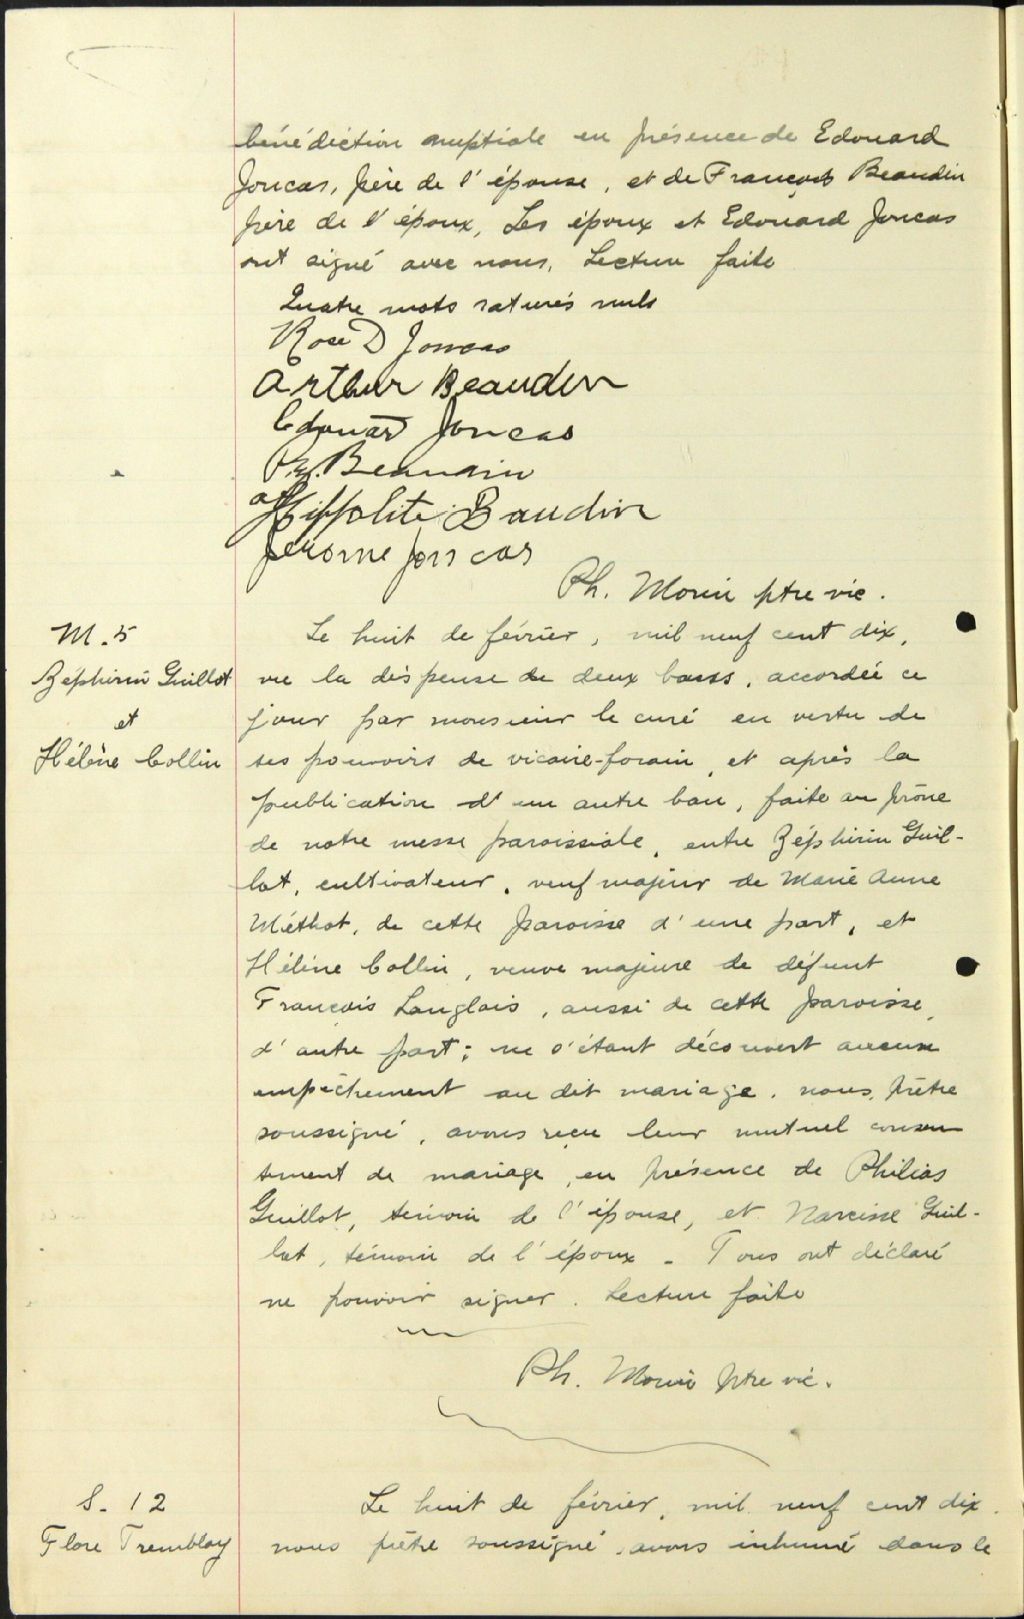 bénédiction nuptiale en présence de Edouard
Joncas, père de l'épouse, et de François Beaudin
père de l'époux, Les époux et Edouard Joncas
ont signé avec nous, Lecture faite
Quatre mots raturés nuls
Rose D Joncas
Arthur Beaudin
Edouard Joncas
Beaudin
Hippolite Baudin
Jerome Joncas
Ph. Morin ptre vic.
M. 5
Zéphirin Guillot
et
Hélène Collin
Le huit de février, mil neuf cent dix,
vu la dispense de deux bans, accordée ce
jour par monsieur le curé en vertu de
ses pouvoirs de vicaire-forain, et après la
publication d'un autre ban, faite au prône
de notre messe paroissiale, entre Zéphirin Guil-
lot, cultivateur, veuf majeur de Marie Anne
Méthot, de cette paroisse d'une part, et
Hélène Collin, veuve majeure de défunt
François Langlois, aussi de cette paroisse,
d'autre part; ne s'étant découvert aucun
empêchement au dit mariage, nous, prêtre
soussigné, avons reçu leur mutuel consen
tement de mariage, en présence de Philias
Guillot, témoin de l'épouse, et Narcisse Guil-
lot, témoin de l'époux - Tous ont déclaré
ne pouvoir signer. Lecture faite
Ph. Morin ptre vic.
S. 12
Flore Tremblay
Le huit de février, mil neuf cent dix,
nous prêtre soussigné, avons inhumé dans le